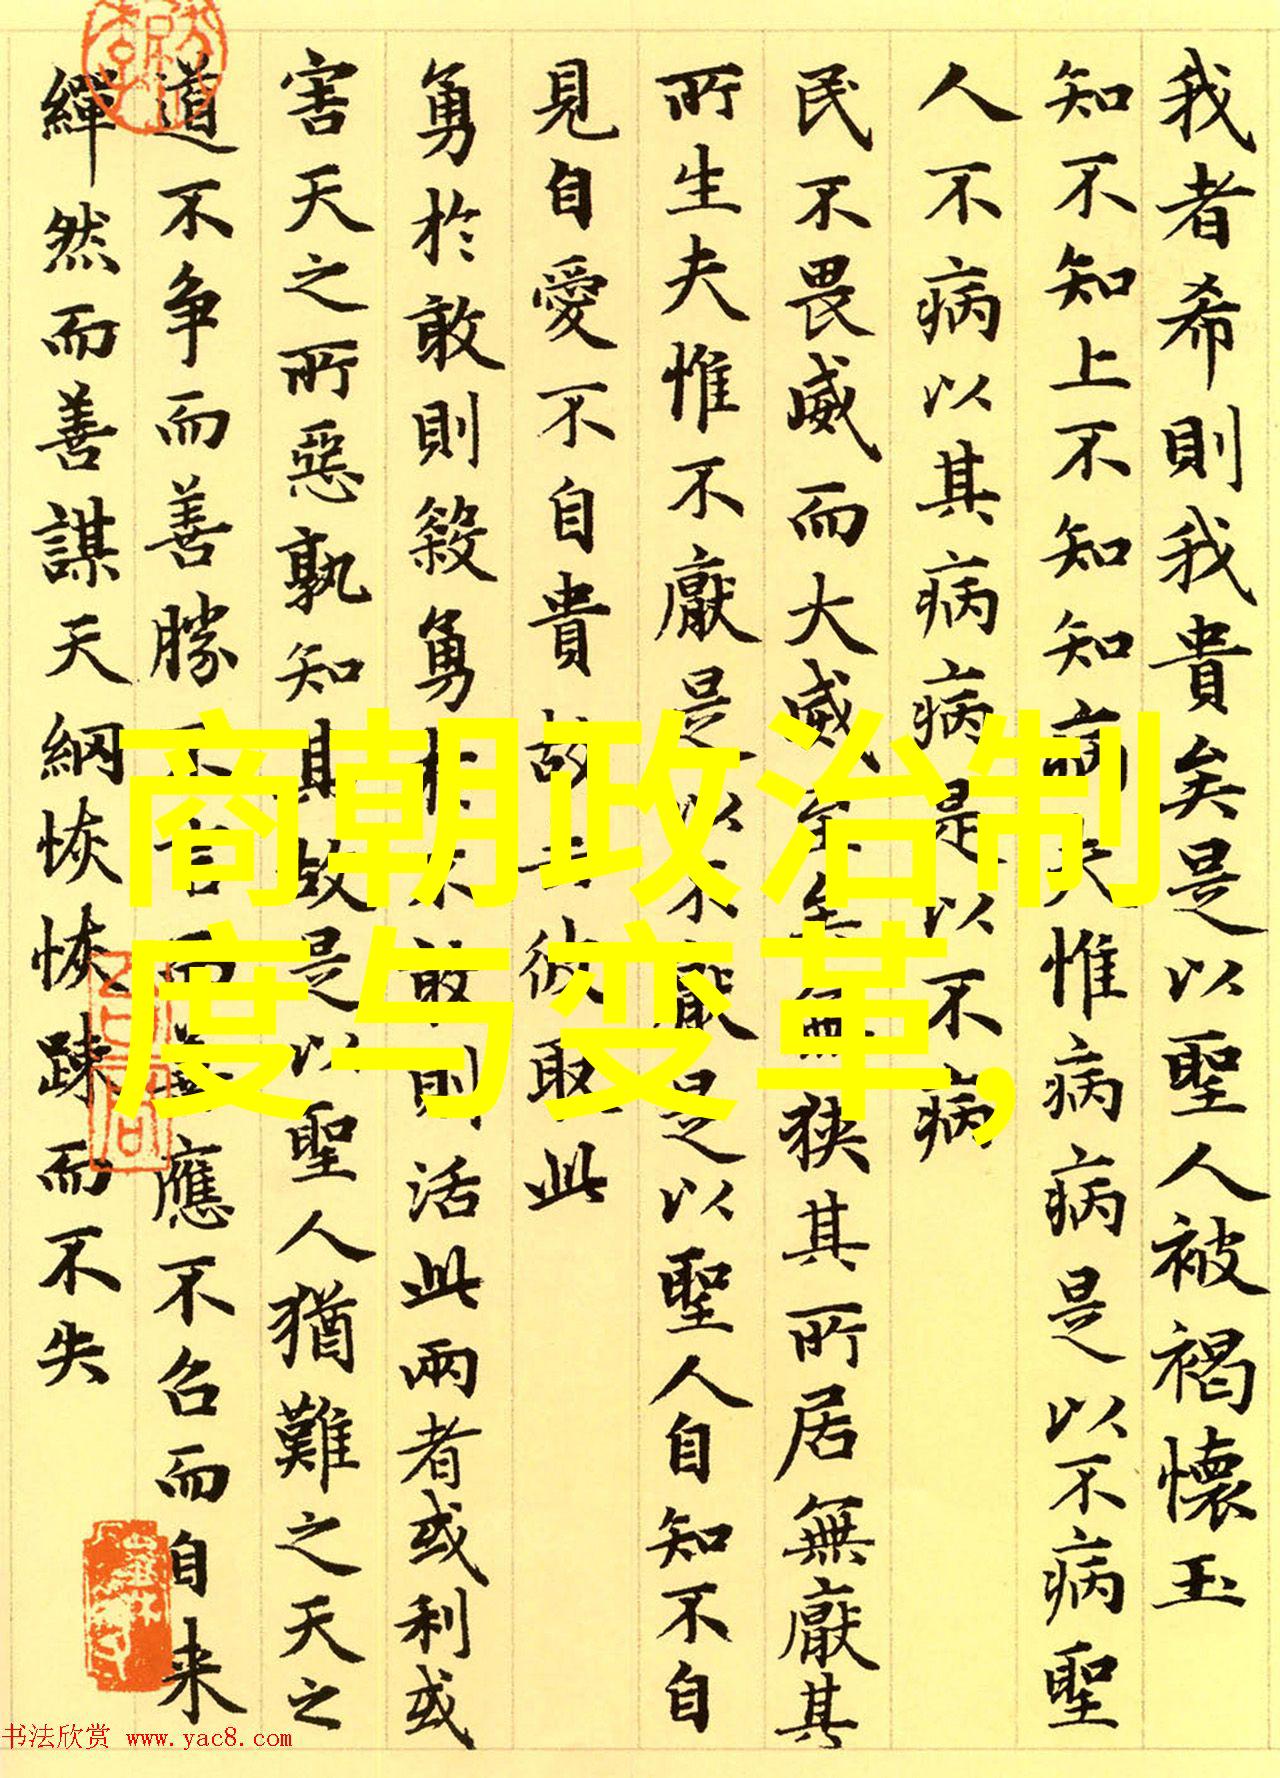 我者希則我貴矣是以聖人被褐懷玉
知不知上不知知病夫惟病病是以不病聖
人不病以其病病是以不病
民不畏威而大威至至無狹其所居無厭其
所生夫惟不厭是以不厭是以聖人自知不自
見自愛不自貴故去彼取此
勇於敢則殺勇於不敢則活此兩者或利或
害天之所惡孰知其故是以聖人猶難之天之
道不争而善勝不言而善應不召而自来
繟然而善謀天網恢恢踈而不失
商朝政治制
度与变革,
书法欣赏 www.yac8.com